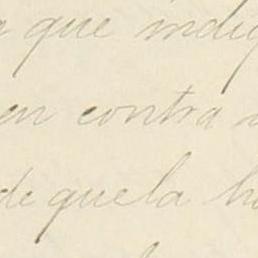 que indig
en contra
de que la h